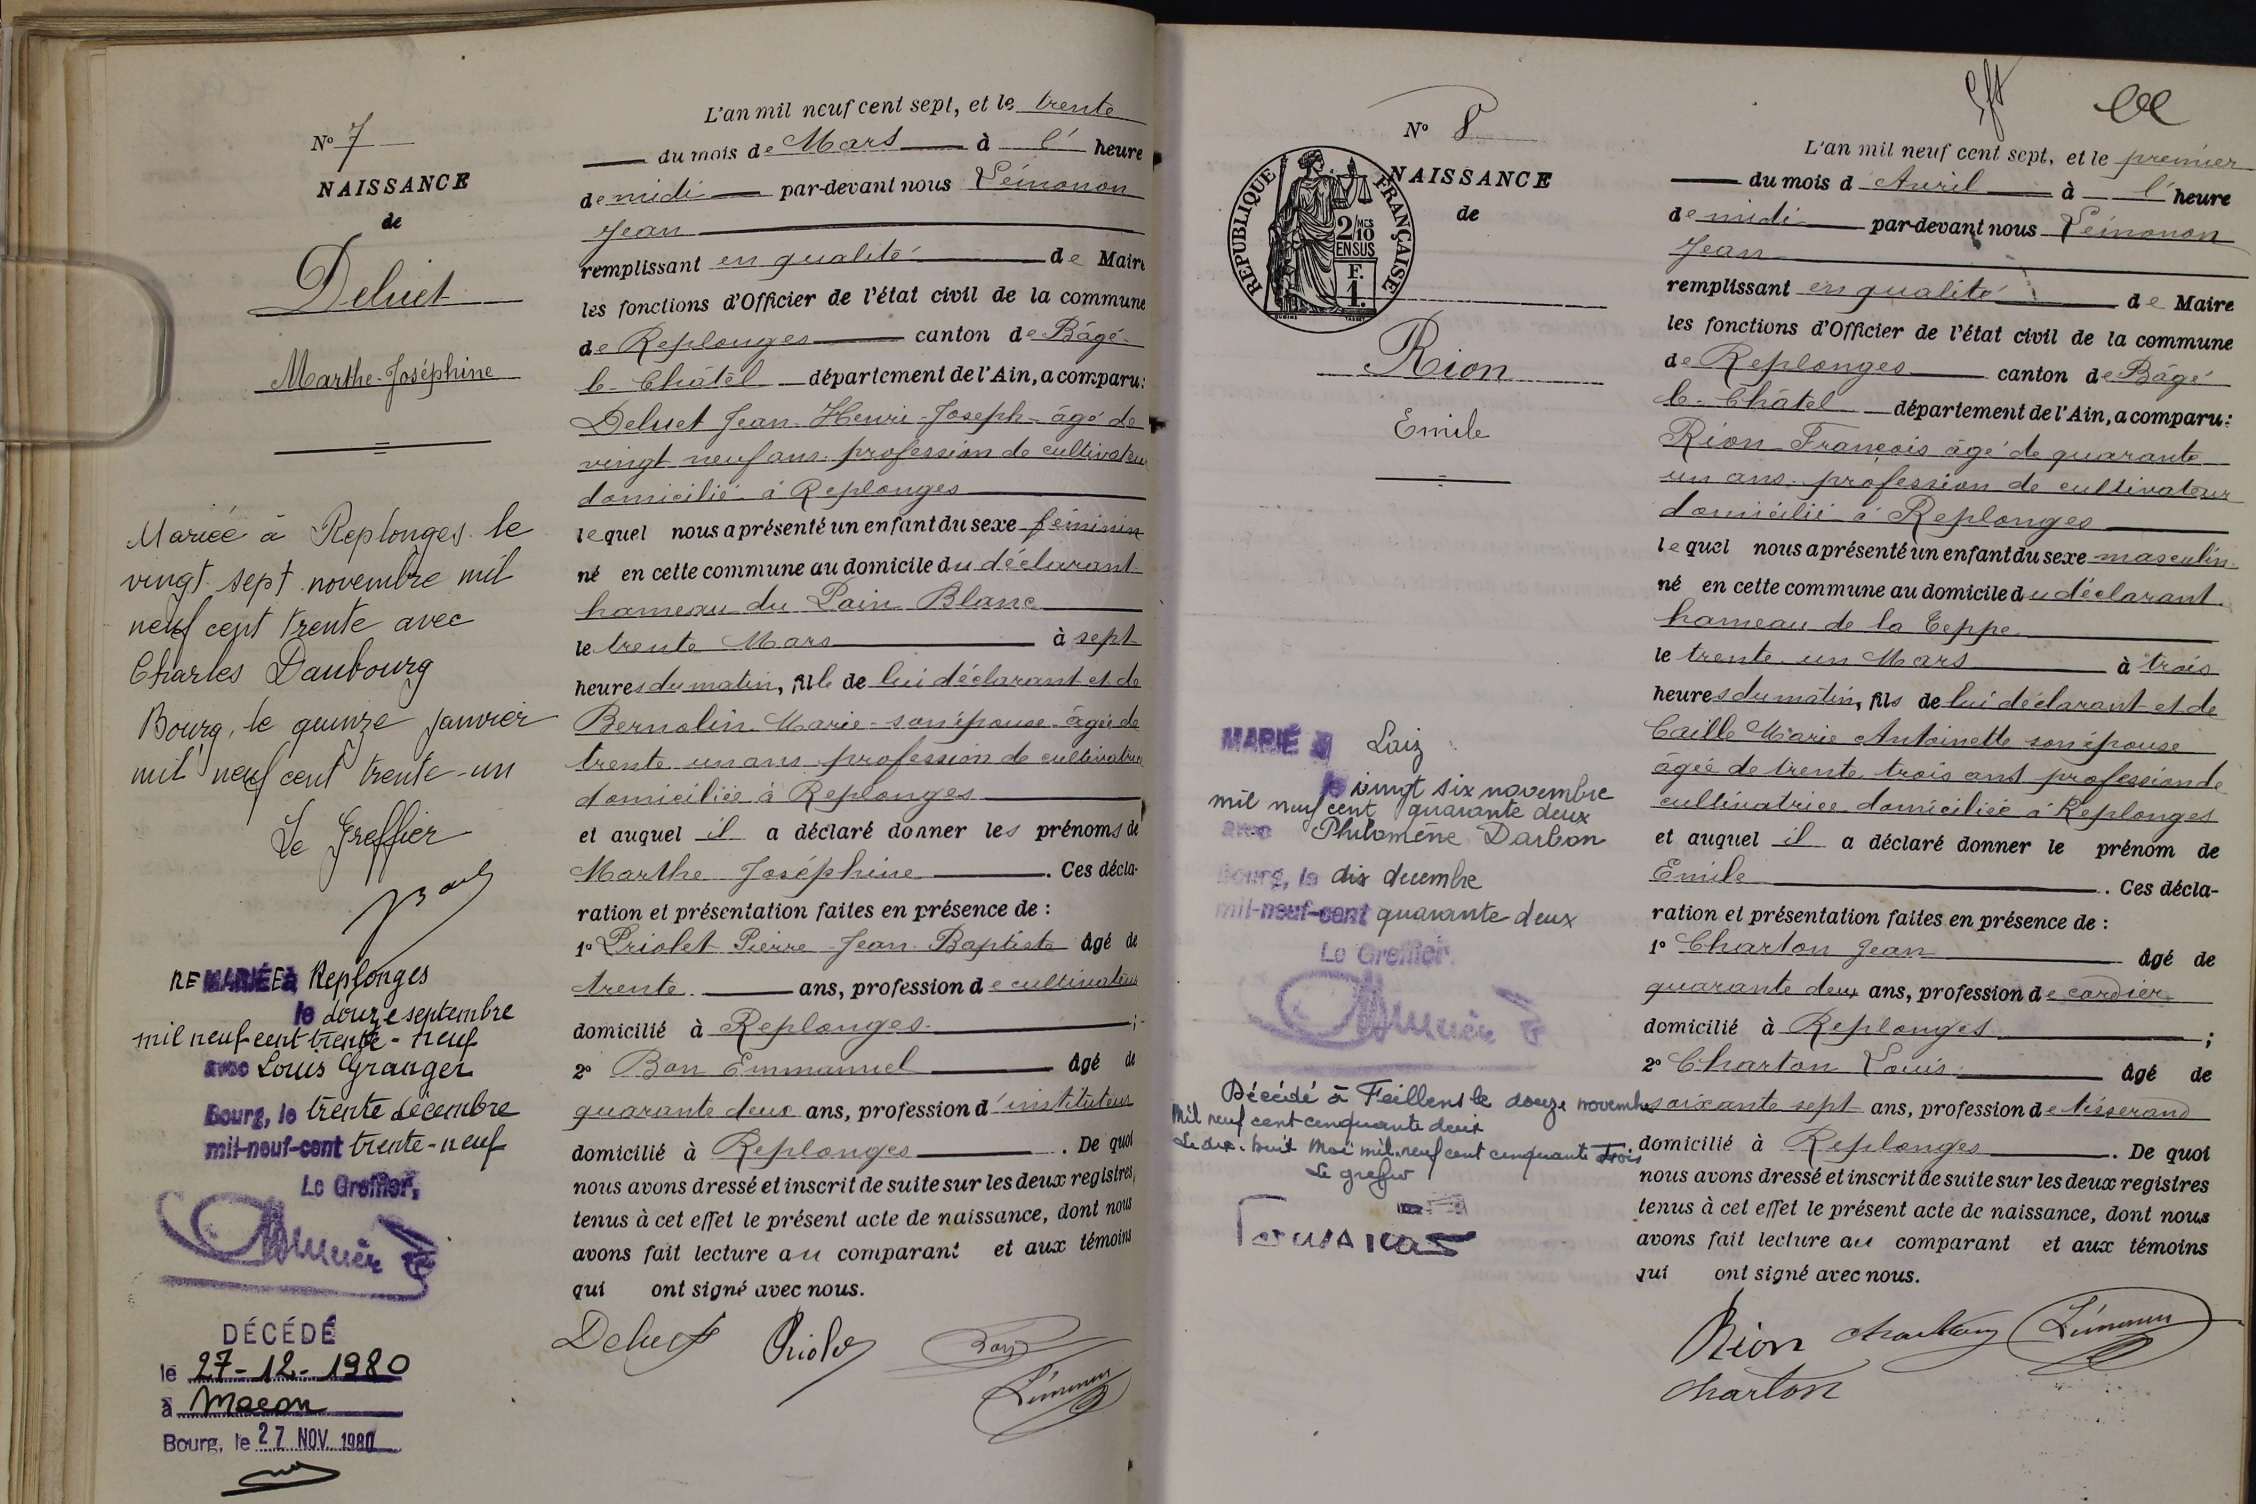 N° 7
NAISSANCE
de
Deluet
Marthe-Joséphine
Mariée à Replonges le
vingt sept novembre mil
neuf cent trente avec
Charles Daubourg
Bourg, le quinze janvier
mil neuf cent trente-un
Le Greffier
REMARIÉE à Replonges
le douze septembre
mil neuf cent trente-neuf
avec Louis Granger
Bourg, le trente décembre
mil-neuf-cent trente-neuf
Le Greffier,
DÉCÉDÉ
le 27-12-1980
à Macon
Bourg, le 27 NOV. 1980
L'an mil neuf cent sept, et le trente
du mois de Mars à l' heure
de midi par-devant nous
Jean
remplissant en qualité de Maire
les fonctions d'Officier de l'état civil de la commune
de Replonges canton de Bâgé-
le-Châtel département de l'Ain, a comparu:
Deluet Jean-Henri-Joseph-âgé de
vingt neuf ans profession de cultivateur
domicilié à Replonges
lequel nous a présenté un enfant du sexe féminin
né en cette commune au domicile du déclarant
hameau du Pain Blanc
le trente Mars à sept
heures du matin, fille de lui déclarant et de
Bernolin Marie-son épouse âgée de
trente un ans profession de cultivatrice
domiciliée à Replonges
et auquel il a déclaré donner les prénoms de
Marthe Joséphine. Ces décla-
ration et présentation faites en présence de :
1° Priolet Pierre-Jean-Baptiste âgé de
trente ans, profession de cultivateur
domicilié à Replonges ;
2° Bon Emmanuel âgé de
quarante deux ans, profession d'instituteur
domicilié à Replonges. De quoi
nous avons dressé et inscrit de suite sur les deux registres,
tenus à cet effet le présent acte de naissance, dont nous
avons fait lecture au comparant et aux témoins
qui ont signé avec nous.
Deluet Priolet Bon
N° 8
NAISSANCE
de
RÉPUBLIQUE FRANÇAISE
2/MES
10
EN SUS
F.
1.
Rion
Emile
MARIÉ à Laiz
le vingt six novembre
mil neuf cent quarante deux
avec Philomène Darbon
Bourg, le dix decembre
mil-neuf-cent quarante deux
Le Greffier.
Décédé à Feillens le douze novembre
Mil neuf cent cinquante deux
Le dix-huit Mai mil neuf cent cinquante trois
Le greffier
L'an mil neuf cent sept, et le premier
du mois d'Avril à l' heure
de midi par-devant nous
Jean
remplissant en qualité de Maire
les fonctions d'Officier de l'état civil de la commune
de Replonges canton de Bâgé
le-Châtel département de l'Ain, a comparu :
Rion François âgé de quarante
un ans profession de cultivateur
domicilié à Replonges
lequel nous a présenté un enfant du sexe masculin
né en cette commune au domicile du déclarant
hameau de la Teppe
le trente un Mars à trois
heures du matin, fils de lui déclarant et de
Caille Marie Antoinette son épouse
âgée de trente trois ans profession de
cultivatrice domiciliée à Replonges
et auquel il a déclaré donner le prénom de
Emile. Ces décla-
ration et présentation faites en présence de :
1° Charton Jean âgé de
quarante deux ans, profession de cordier
domicilié à Replonges ;
2° Charton Louis âgé de
soixante sept ans, profession de tisserand
domicilié à Replonges. De quoi
nous avons dressé et inscrit de suite sur les deux registres
tenus à cet effet le présent acte de naissance, dont nous
avons fait lecture au comparant et aux témoins
qui ont signé avec nous.
Rion Charton
Charton